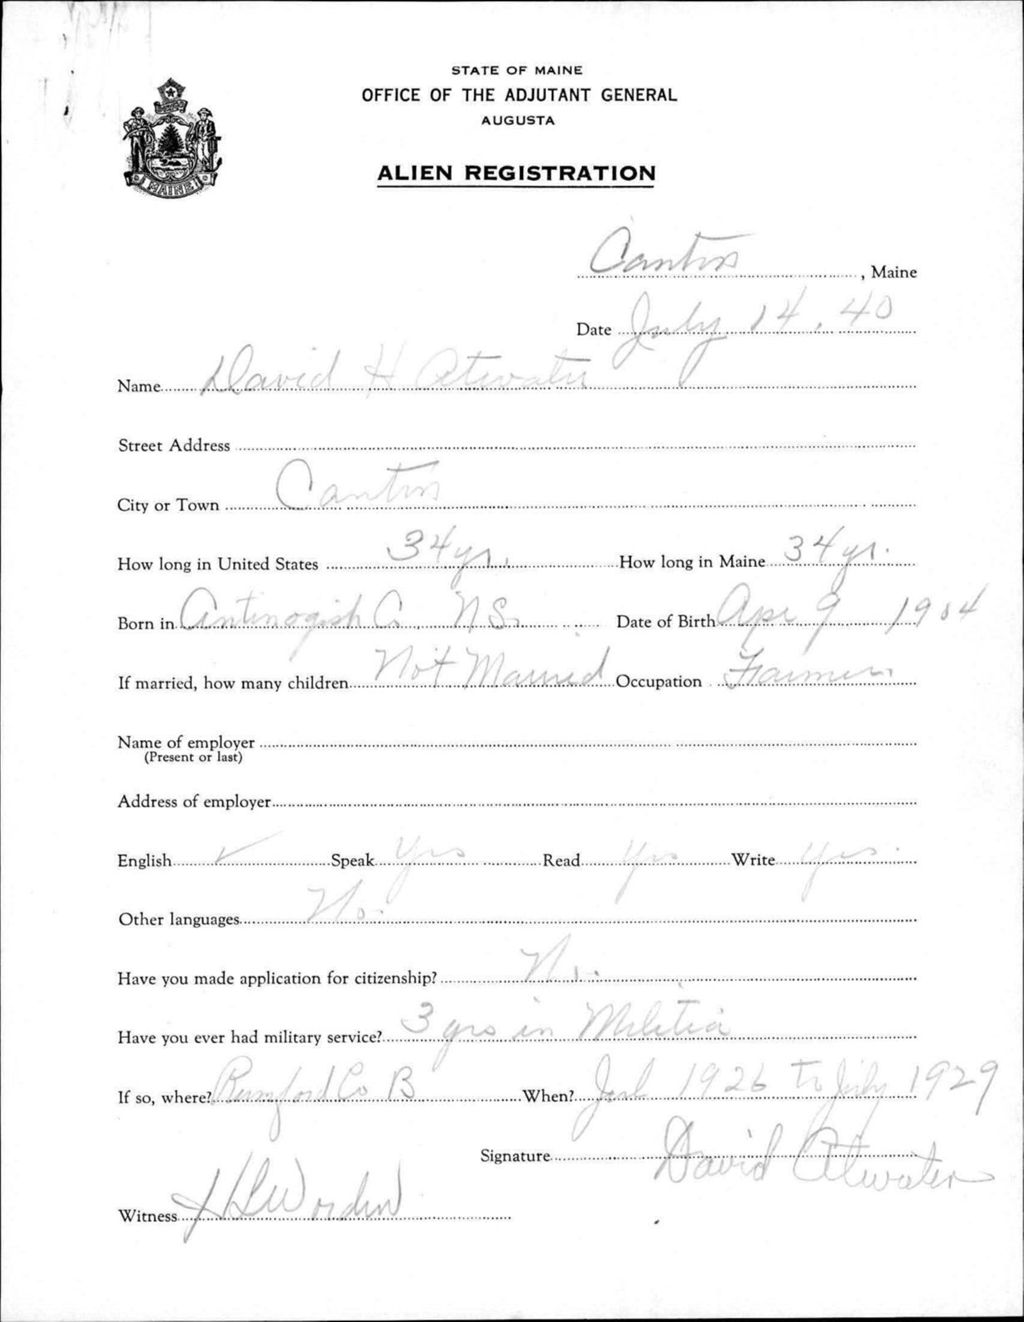 STATE OF MAINE
OFFICE OF THE ADJUTANT GENERAL
AUGUSTA
ALIEN REGISTRATION
MAINE
Canton, Maine
Date July 14, 40
Name David H Atwater
Street Address
City or Town Canton
How long in United States 34 yr. How long in Maine 34 yr.
Born in Antinogish Co, N.S. Date of Birth Apr 9 1904
If married, how many children Not Married Occupation Farmer
Name of employer
(Present or last)
Address of employer
English ✓ Speak Yes Read Yes Write Yes.
Other languages No.
Have you made application for citizenship? No.
Have you ever had military service? 3 yrs in Militia
If so, where? Rumford Co B When? 1926 to July 1929
Signature David Atwater
Witness Worden